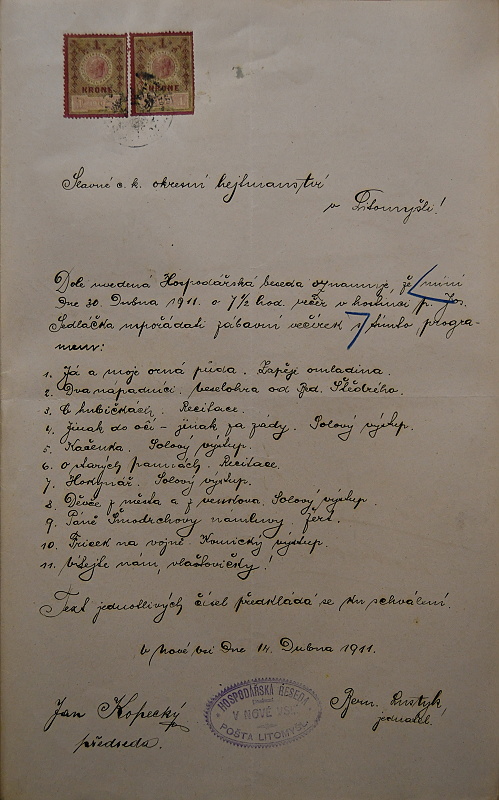 1 1
KRONE KRONE
Slavné c. k. okresní hejtmanství
v Litomyšli!
Dole uvedená Hospodářská beseda oznamuje, že míní
Dne 30. Dubna 1911. o 7½ hod. večer v hostinci p. Jos.
Sedláčka uspořádati zábavní večírek s tímto progra-
mem:
1. Já a moje orná půda. Zapějí omladina.
2. Dva nápadníci. Veselohra od Štěstrého.
3. O kubičkách. Recitace.
4. Jinak do očí – jinak za zády. Solový výstup.
5. Načenka. Solový výstup.
6. O starých pannách. Recitace.
7. Hokynář. Solový výstup.
8. Děvče z města a z venkova. Solový výstup.
9. Páně Šmodrchovy námluvy. Žert.
10. Fricek na vojně. Komický výstup.
11. Vítejte nám, vlaštovičky!
Text jednotlivých čísel předkládá se ku schválení.
V Nové vsi Dne 14. Dubna 1911.
Jan Kopecký
předseda.
HOSPODÁŘSKÁ BESEDA
V NOVÉ VSI
POŠTA LITOMYŠL
Bern.
jednatel.